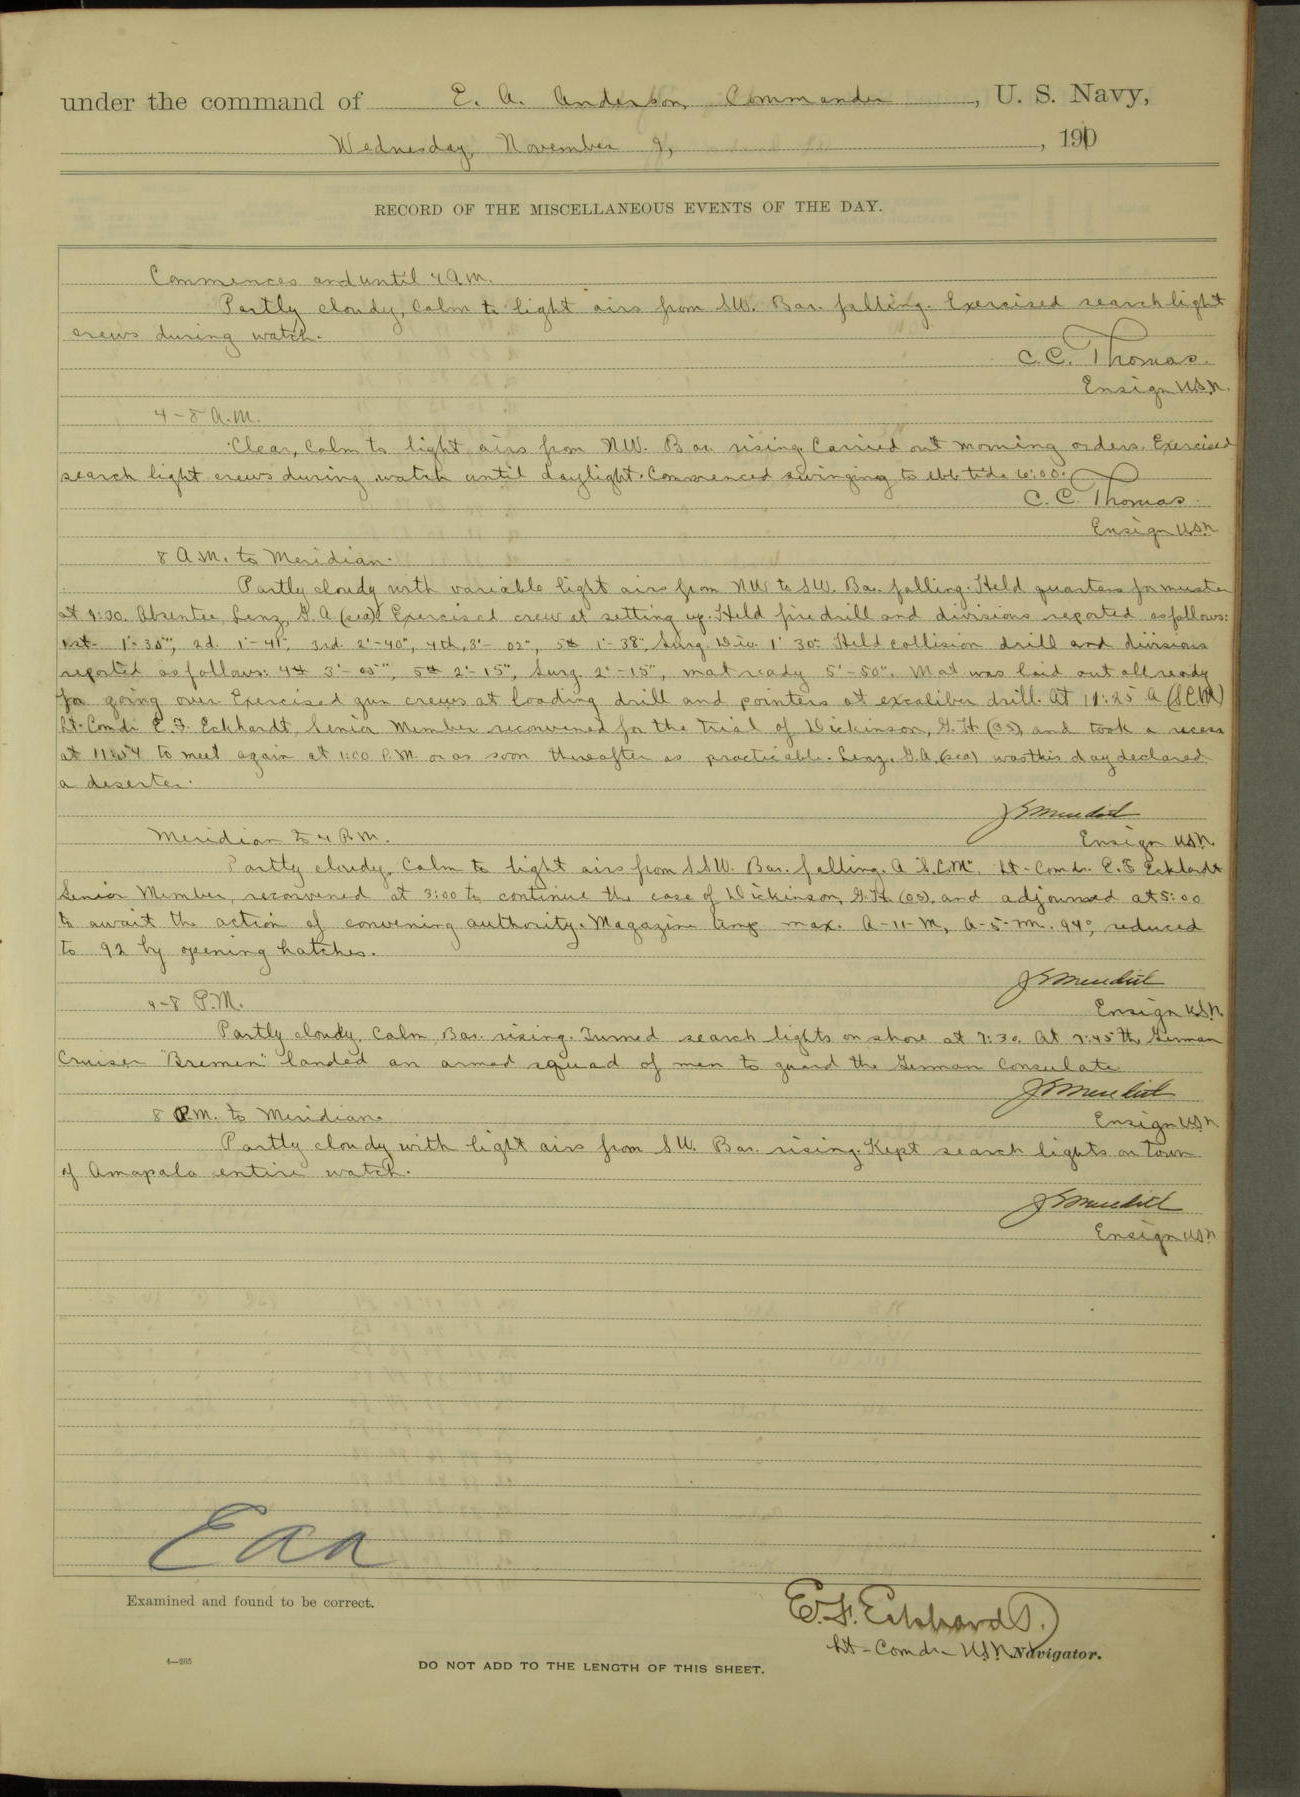 under the command of E. A. Anderson, Commander, U. S. Navy,
Wednesday, November 9, , 1910
RECORD OF THE MISCELLANEOUS EVENTS OF THE DAY.
Commences and until 4 A.M.
Partly cloudy, Calm to light airs from SW. Bar. falling. Exercised searchlight
crews during watch.
C. C. Thomas.
Ensign U.S.N.
4-8 A.M.
Clear, Calm to light airs from NW. Bar rising. Carried out morning orders. Exercised
search light crews during watch until daylight. Commenced swinging to ebb tide 6:00.
C. C. Thomas.
Ensign U.S.N.
8 A.M. to Meridian.
Partly cloudy with variable light airs from NW to SW. Bar. falling. Held quarters for muster
at 9:30. Absentee, Lenz, G.A (sea) Exercised crew at setting up. Held fire drill and divisions reported as follows:
1st- 1'-35", 2d. 1'-41", 3rd. 2'-40", 4th, 3'- 02", 5th 1'-38", Surg. Div. 1' 30". Held collision drill and divisions
reported as follows: 4th 3'-05", 5th 2'-15", Surg. 2'-15", mat ready 5'-50". Mat was laid out all ready
for going over Exercised gun crews at loading drill and pointers at excaliber drill. At 11:25 A (S.C.M.)
Lt-Comdr E. F. Eckhardt, Senior Member reconvened for the trial of Dickinson, G.H. (OS), and took a recess
at 11:54 to meet again at 1:00 P.M. or as soon thereafter as practicable. Lenz, G.A. (sea) was this day declared
a deserter.
J S Meredith
Ensign U.S.N.
Meridian to 4 P.M.
Partly cloudy, Calm to light airs from SSW. Bar. falling. A "S.C.M." Lt-Comdr. E. F. Eckhardt
Senior Member, reconvened at 3:00 to continue the case of Dickinson, G.H. (OS), and adjourned at 5:00
to await the action of convening authority. Magazine temp max. A-11-M, A-5-M. 94°, reduced
to 92 by opening hatches.
J S Meredith
Ensign U.S.N.
4-8 P.M.
Partly cloudy, Calm, Bar. rising. Turned search lights on shore at 7:30. At 7:45 the German
Cruiser "Bremen" landed an armed squad of men to guard the German Consulate
J S Meredith
Ensign U.S.N.
8 P.M. to Meridian.
Partly cloudy with light airs from SW. Bar. rising. Kept search lights on town
of Amapala entire watch.
J S Meredith
Ensign U.S.N.
Eaa
Examined and found to be correct.
E. F. Eckhardt.
Lt-Comdr U.S.N. Navigator.
4—265
DO NOT ADD TO THE LENGTH OF THIS SHEET.